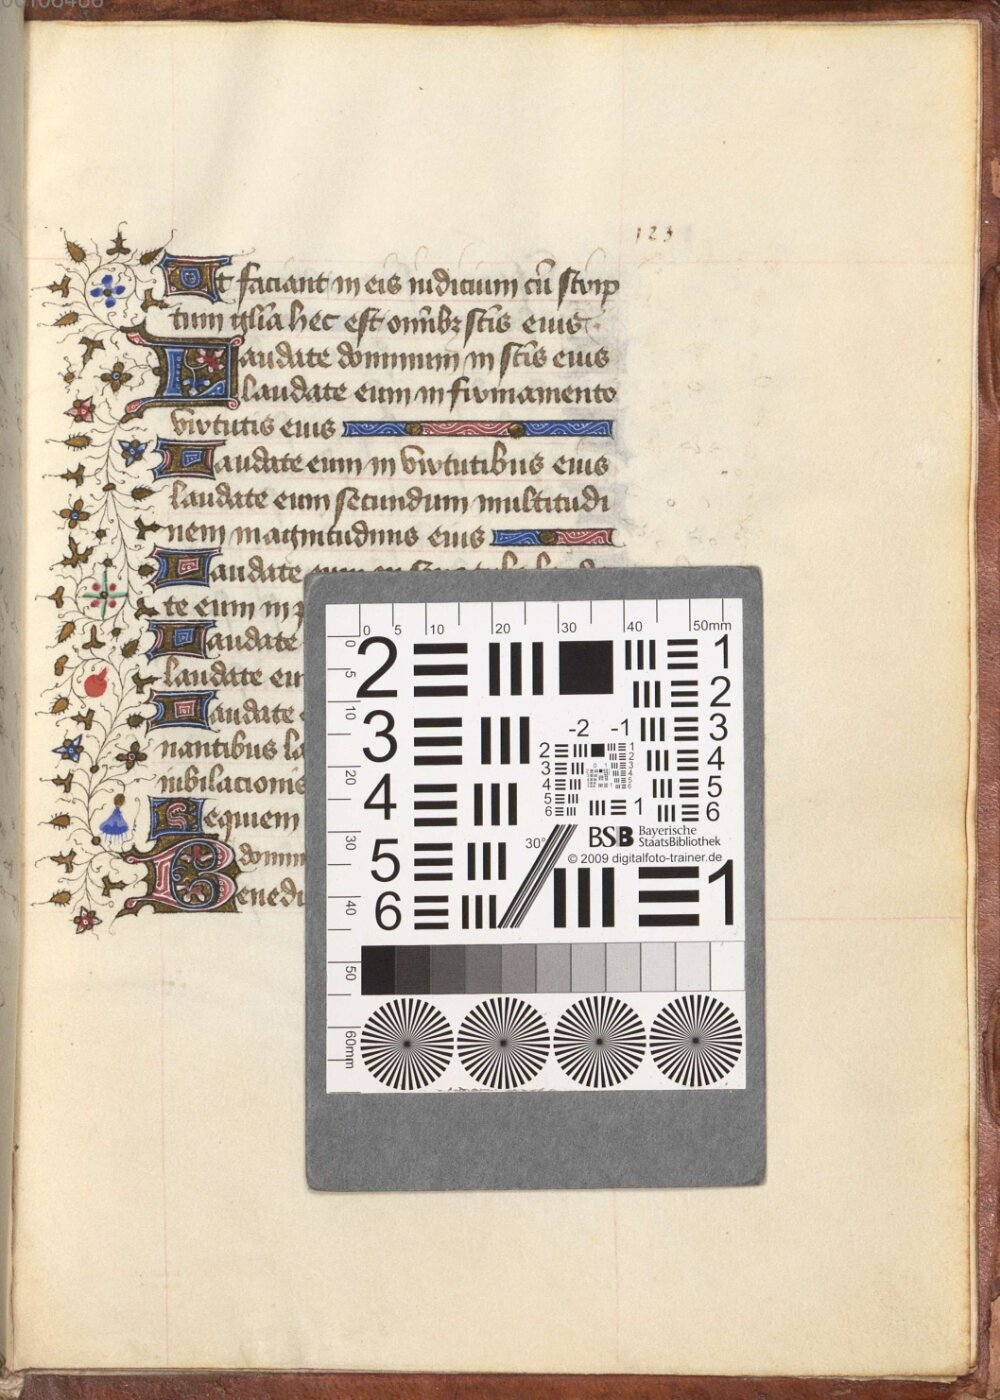 00106466
123
Ut faciant in eis iudicium cū scrip
tum glīa hec est omībz sc̄is eius
Laudate dominum in sc̄is eius
laudate eum in firmamento
virtutis eius
Laudate eum in virtutibus eius
laudate eum secundum multitudi
nem magnitudinis eius
audate eum
te eum in
Laudate
laudate eu
Laudate
nantibus la
iubilacionis
Requiem
domin
Benedi
0 5 10 20 30 40 50mm
0 5 10 20 30 40 50 60mm
2 1
2
3 3
4 4
5 5
6 6
-2 -1
2 1
3 2
4 3
5 4
6 5
6
1
30°
BSB Bayerische
StaatsBibliothek
© 2009 digitalfoto-trainer.de
1